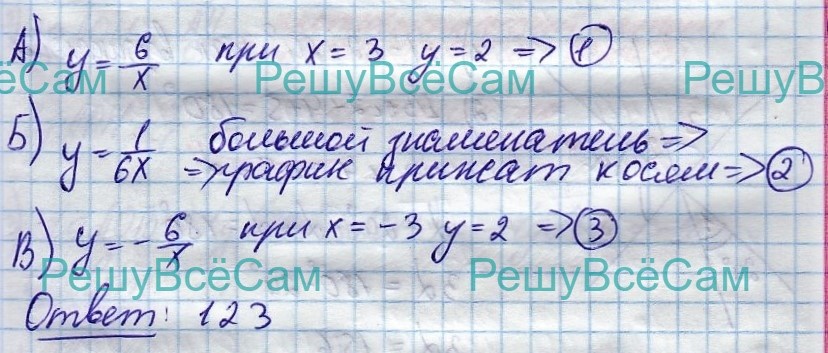 А) y = 6/x при x = 3 y = 2 => ①
РешуВсёСам РешуВсёСам РешуВсёСам
Б) y = 1/6x большой знаменатель =>
=> график прижат к осям => ②
В) y = - 6/x при x = -3 y = 2 => ③
РешуВсёСам РешуВсёСам
Ответ: 123